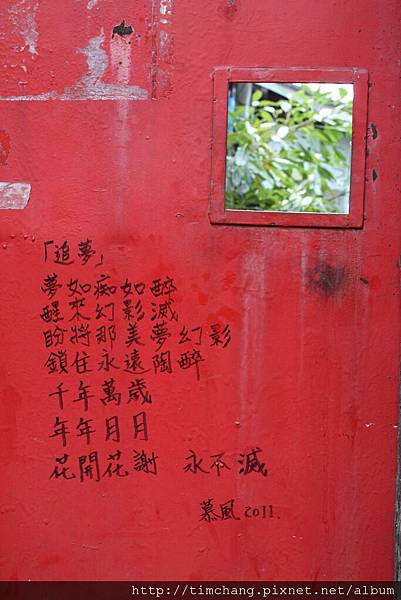 「追夢」
夢如痴如醉
醒來幻影滅
盼將那美夢幻影
鎖住永遠陶醉
千年萬歲
年年月月
花開花謝 永不滅
慕風 2011.
http://timchang.pixnet.net/album